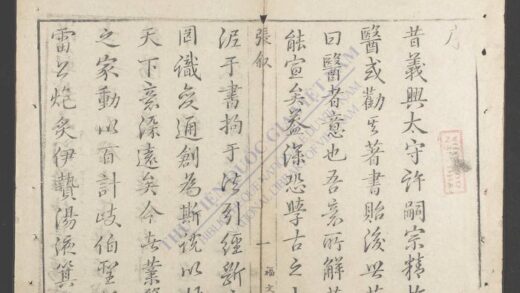 序
昔義興太守許嗣宗精於
醫或勸其著書貽後世答
曰醫者意也吾意所解
能宣矣蓋深恐學古之
張叙 一 福文
泥于書拘于法引經斷
罔識變通創為斯說以
天下意深遠矣今世業
之家動以百計岐伯聖
雷公炮炙伊贄湯液箕
THƯ VIỆN QUỐC GIA VIỆT NAM
NATIONAL LIBRARY OF VIETNAM